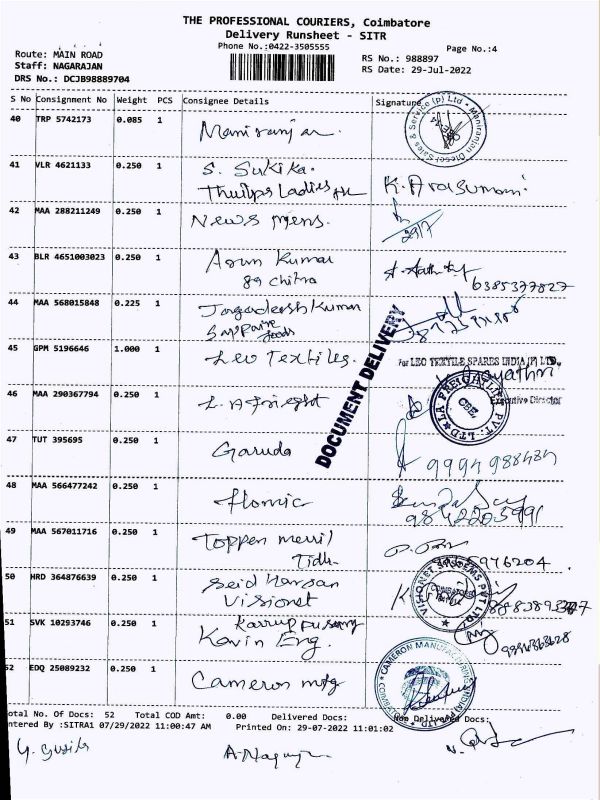 THE PROFESSIONAL COURIERS, Coimbatore
Delivery Runsheet - SITR
Phone No.:0422-3505555
Page No.:4
Route: MAIN ROAD
Staff: NAGARAJAN
DRS No.: DCJB98889704
RS No.: 988897
RS Date: 29-Jul-2022
S No Consignment No Weight PCS Consignee Details Signature
40 TRP 5742173 0.085 1 Maniranjan
41 VLR 4621133 0.250 1 S. Sukika.
Ladies K. Arasumani
42 MAA 288211249 0.250 1 News mens.
29/7
43 BLR 4651003023 0.250 1 Arun Kumar
89 chitra 6385377827
44 MAA 568015848 0.225 1 Jagadeesh Kumar
foods
DOCUMENT DELIVERY
45 GPM 5196646 1.000 1 Leo Textiles. For LEO TEXTILE SPARES INDIA (P) LTD.,
Executive Director
46 MAA 290367794 0.250 1 L.A Freight
LA FREIGHTLIFT PVT. LTD CBE
47 TUT 395695 0.250 1 Garuda
9994988484
48 MAA 566477242 0.250 1 flomic
9842205991
49 MAA 567011716 0.250 1 Toppen
5976204
50 HRD 364876639 0.250 1 Seid Hassan
Visionet VISIONET SYSTEMS PVT LTD
51 SVK 10293746 0.250 1 Karruppusamy
Kavin Eng.
52 EDQ 25089232 0.250 1 Cameron mfg
CAMERON MANUFACTURING (INDIA) P LTD
otal No. Of Docs: 52 Total COD Amt: 0.00 Delivered Docs: Non Delivered Docs:
ntered By :SITRA1 07/29/2022 11:00:47 AM Printed On: 29-07-2022 11:01:02